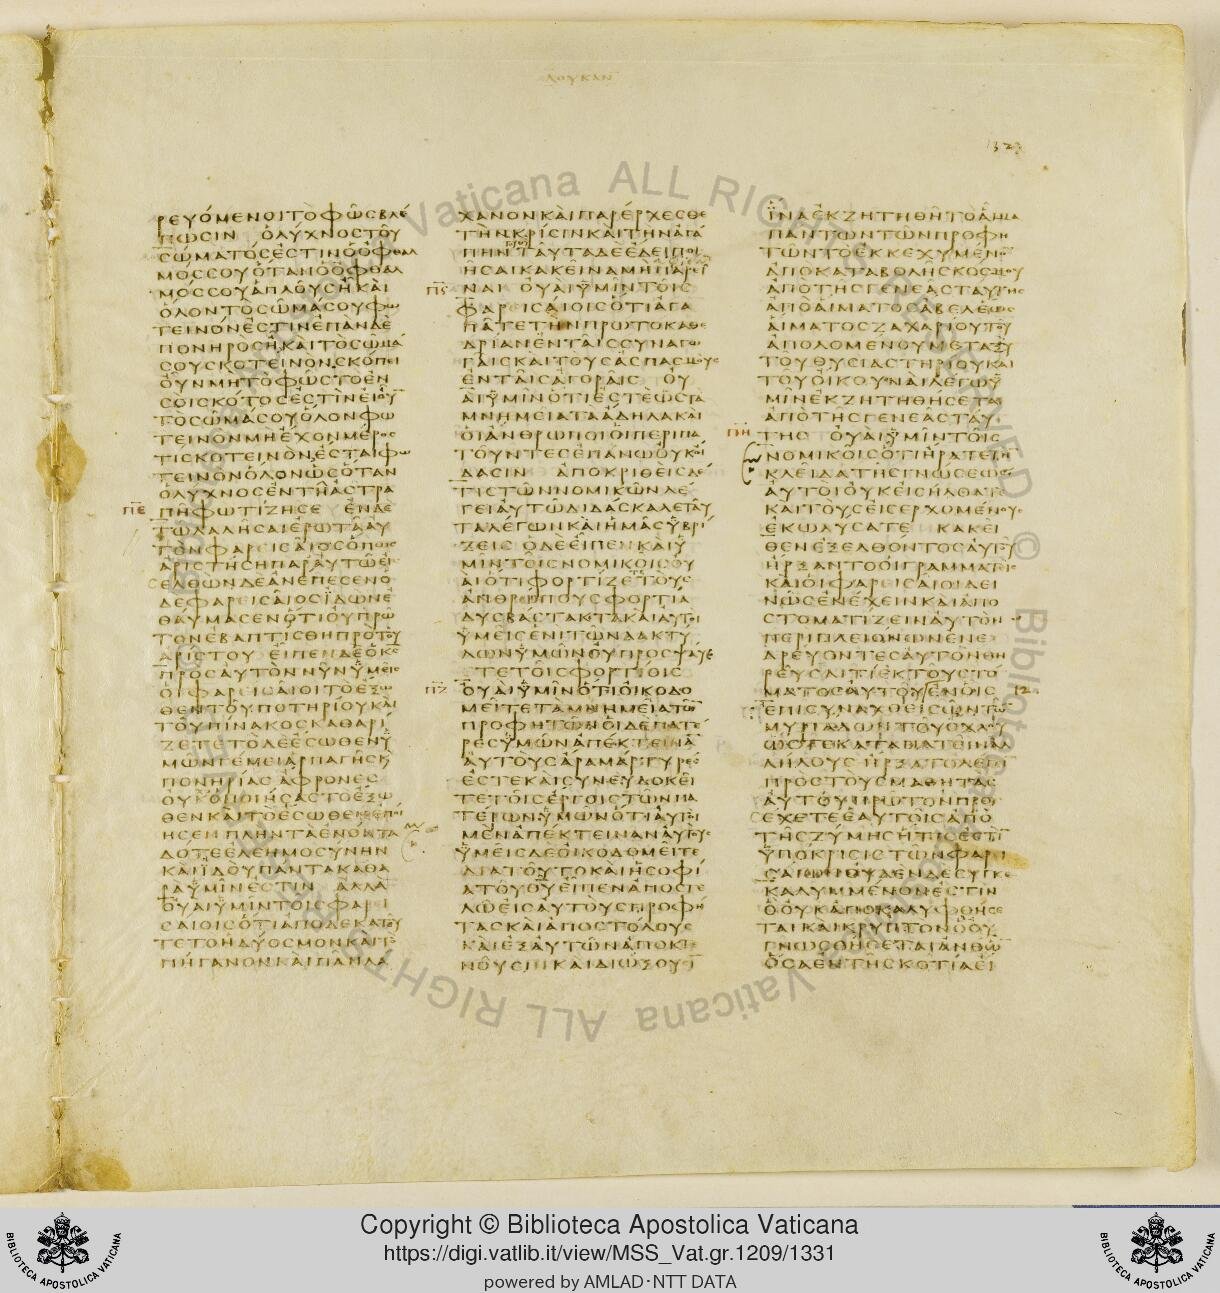 ΛΟΥΚΑΝ
1323
ΡΕΥΟΜΕΝΟΙ ΤΟ ΦΩΣ ΒΛΕ
ΠΩΣΙΝ Ο ΛΥΧΝΟΣ ΤΟΥ
ΣΩΜΑΤΟΣ ΕΣΤΙΝ Ο ΟΦΘΑΛ
ΜΟΣ ΣΟΥ ΟΤΑΝ Ο ΟΦΘΑΛ
ΜΟΣ ΣΟΥ ΑΠΛΟΥΣ Η ΚΑΙ
ΟΛΟΝ ΤΟ ΣΩΜΑ ΣΟΥ ΦΩ
ΤΕΙΝΟΝ ΕΣΤΙΝ ΕΠΑΝ ΔΕ
ΠΟΝΗΡΟΣ Η ΚΑΙ ΤΟ ΣΩΜΑ
ΣΟΥ ΣΚΟΤΕΙΝΟΝ ΣΚΟΠΕΙ
ΟΥΝ ΜΗ ΤΟ ΦΩΣ ΤΟ ΕΝ
ΣΟΙ ΣΚΟΤΟΣ ΕΣΤΙΝ ΕΙ ΟΥ
ΤΟ ΣΩΜΑ ΣΟΥ ΟΛΟΝ ΦΩ
ΤΕΙΝΟΝ ΜΗ ΕΧΟΝ ΜΕΡΟΣ
ΤΙ ΣΚΟΤΕΙΝΟΝ ΕΣΤΑΙ ΦΩ
ΤΕΙΝΟΝ ΟΛΟΝ ΩΣ ΟΤΑΝ
Ο ΛΥΧΝΟΣ ΕΝ ΤΗ ΑΣΤΡΑ
ΠΕ ΠΗ ΦΩΤΙΖΗ ΣΕ ΕΝ ΔΕ
ΤΩ ΛΑΛΗΣΑΙ ΕΡΩΤΑ ΑΥ
ΤΟΝ ΦΑΡΕΙΣΑΙΟΣ ΟΠΩΣ
ΑΡΙΣΤΗΣΗ ΠΑΡ ΑΥΤΩ ΕΙΣ
ΕΛΘΩΝ ΔΕ ΑΝΕΠΕΣΕΝ Ο
ΔΕ ΦΑΡΕΙΣΑΙΟΣ ΙΔΩΝ Ε
ΘΑΥΜΑΣΕΝ ΟΤΙ ΟΥ ΠΡΩ
ΤΟΝ ΕΒΑΠΤΙΣΘΗ ΠΡΟ ΤΟΥ
ΑΡΙΣΤΟΥ ΕΙΠΕΝ ΔΕ Ο ΚΣ
ΠΡΟΣ ΑΥΤΟΝ ΝΥΝ ΥΜΕΙΣ
ΟΙ ΦΑΡΕΙΣΑΙΟΙ ΤΟ ΕΞΩ
ΘΕΝ ΤΟΥ ΠΟΤΗΡΙΟΥ ΚΑΙ
ΤΟΥ ΠΙΝΑΚΟΣ ΚΑΘΑΡΙ
ΖΕΤΕ ΤΟ ΔΕ ΕΣΩΘΕΝ Υ
ΜΩΝ ΓΕΜΕΙ ΑΡΠΑΓΗΣ Κ
ΠΟΝΗΡΙΑΣ ΑΦΡΟΝΕΣ
ΟΥΧ Ο ΠΟΙΗΣΑΣ ΤΟ ΕΞΩ
ΘΕΝ ΚΑΙ ΤΟ ΕΣΩΘΕΝ ΕΠΟΙ
ΗΣΕΝ ΠΛΗΝ ΤΑ ΕΝΟΝΤΑ
ΔΟΤΕ ΕΛΕΗΜΟΣΥΝΗΝ
ΚΑΙ ΙΔΟΥ ΠΑΝΤΑ ΚΑΘΑ
ΡΑ ΥΜΙΝ ΕΣΤΙΝ ΑΛΛΑ
ΟΥΑΙ ΥΜΙΝ ΤΟΙΣ ΦΑΡΕΙ
ΣΑΙΟΙΣ ΟΤΙ ΑΠΟΔΕΚΑΤΟΥ
ΤΕ ΤΟ ΗΔΥΟΣΜΟΝ ΚΑΙ ΤΟ
ΠΗΓΑΝΟΝ ΚΑΙ ΠΑΝ ΛΑ
ΧΑΝΟΝ ΚΑΙ ΠΑΡΕΡΧΕΣΘΕ
ΤΗΝ ΚΡΙΣΙΝ ΚΑΙ ΤΗΝ ΑΓΑ
ΠΗΝ ΤΟΥ ΘΥ ΤΑΥΤΑ ΔΕ ΕΔΕΙ ΠΟΙ
ΗΣΑΙ ΚΑΚΕΙΝΑ ΜΗ ΠΑΡΕΙ
ΠϚ ΝΑΙ ΟΥΑΙ ΥΜΙΝ ΤΟΙΣ
ΦΑΡΕΙΣΑΙΟΙΣ ΟΤΙ ΑΓΑ
ΠΑΤΕ ΤΗΝ ΠΡΩΤΟΚΑΘΕ
ΔΡΙΑΝ ΕΝ ΤΑΙΣ ΣΥΝΑΓΩ
ΓΑΙΣ ΚΑΙ ΤΟΥΣ ΑΣΠΑΣΜΟΥΣ
ΕΝ ΤΑΙΣ ΑΓΟΡΑΙΣ ΟΥ
ΑΙ ΥΜΙΝ ΟΤΙ ΕΣΤΕ ΩΣ ΤΑ
ΜΝΗΜΕΙΑ ΤΑ ΑΔΗΛΑ ΚΑΙ
ΟΙ ΑΝΘΡΩΠΟΙ ΟΙ ΠΕΡΙΠΑ
ΤΟΥΝΤΕΣ ΕΠΑΝΩ ΟΥΚ ΟΙ
ΔΑΣΙΝ ΑΠΟΚΡΙΘΕΙΣ ΔΕ
ΤΙΣ ΤΩΝ ΝΟΜΙΚΩΝ ΛΕ
ΓΕΙ ΑΥΤΩ ΔΙΔΑΣΚΑΛΕ ΤΑΥ
ΤΑ ΛΕΓΩΝ ΚΑΙ ΗΜΑΣ ΥΒΡΙ
ΖΕΙΣ Ο ΔΕ ΕΙΠΕΝ ΚΑΙ Υ
ΜΙΝ ΤΟΙΣ ΝΟΜΙΚΟΙΣ ΟΥ
ΑΙ ΟΤΙ ΦΟΡΤΙΖΕΤΕ ΤΟΥΣ
ΑΝΘΡΩΠΟΥΣ ΦΟΡΤΙΑ
ΔΥΣΒΑΣΤΑΚΤΑ ΚΑΙ ΑΥΤΟΙ
ΥΜΕΙΣ ΕΝΙ ΤΩΝ ΔΑΚΤΥ
ΛΩΝ ΥΜΩΝ ΟΥ ΠΡΟΣΨΑΥΕ
ΤΕ ΤΟΙΣ ΦΟΡΤΙΟΙΣ
ΠΖ ΟΥΑΙ ΥΜΙΝ ΟΤΙ ΟΙΚΟΔΟ
ΜΕΙΤΕ ΤΑ ΜΝΗΜΕΙΑ ΤΩΝ
ΠΡΟΦΗΤΩΝ ΟΙ ΔΕ ΠΑΤΕ
ΡΕΣ ΥΜΩΝ ΑΠΕΚΤΕΙΝΑΝ
ΑΥΤΟΥΣ ΑΡΑ ΜΑΡΤΥΡΕΣ
ΕΣΤΕ ΚΑΙ ΣΥΝΕΥΔΟΚΕΙ
ΤΕ ΤΟΙΣ ΕΡΓΟΙΣ ΤΩΝ ΠΑ
ΤΕΡΩΝ ΥΜΩΝ ΟΤΙ ΑΥΤΟΙ
ΜΕΝ ΑΠΕΚΤΕΙΝΑΝ ΑΥΤΟΥΣ
ΥΜΕΙΣ ΔΕ ΟΙΚΟΔΟΜΕΙΤΕ
ΔΙΑ ΤΟΥΤΟ ΚΑΙ Η ΣΟΦΙ
Α ΤΟΥ ΘΥ ΕΙΠΕΝ ΑΠΟΣΤΕ
ΛΩ ΕΙΣ ΑΥΤΟΥΣ ΠΡΟΦΗ
ΤΑΣ ΚΑΙ ΑΠΟΣΤΟΛΟΥΣ
ΚΑΙ ΕΞ ΑΥΤΩΝ ΑΠΟΚΤΕ
ΝΟΥΣΙΝ ΚΑΙ ΔΙΩΞΟΥΣΙ
ΙΝΑ ΕΚΖΗΤΗΘΗ ΤΟ ΑΙΜΑ
ΠΑΝΤΩΝ ΤΩΝ ΠΡΟΦΗ
ΤΩΝ ΤΟ ΕΚΚΕΧΥΜΕΝΟΝ
ΑΠΟ ΚΑΤΑΒΟΛΗΣ ΚΟΣΜΟΥ
ΑΠΟ ΤΗΣ ΓΕΝΕΑΣ ΤΑΥΤΗΣ
ΑΠΟ ΑΙΜΑΤΟΣ ΑΒΕΛ ΕΩΣ
ΑΙΜΑΤΟΣ ΖΑΧΑΡΙΟΥ ΤΟΥ
ΑΠΟΛΟΜΕΝΟΥ ΜΕΤΑΞΥ
ΤΟΥ ΘΥΣΙΑΣΤΗΡΙΟΥ ΚΑΙ
ΤΟΥ ΟΙΚΟΥ ΝΑΙ ΛΕΓΩ Υ
ΜΙΝ ΕΚΖΗΤΗΘΗΣΕΤΑΙ
ΑΠΟ ΤΗΣ ΓΕΝΕΑΣ ΤΑΥ
ΠΗ ΤΗΣ ΟΥΑΙ ΥΜΙΝ ΤΟΙΣ
ΝΟΜΙΚΟΙΣ ΟΤΙ ΗΡΑΤΕ ΤΗΝ
ΚΛΕΙΔΑ ΤΗΣ ΓΝΩΣΕΩΣ
ΑΥΤΟΙ ΟΥΚ ΕΙΣΗΛΘΑΤΕ
ΚΑΙ ΤΟΥΣ ΕΙΣΕΡΧΟΜΕΝΟΥΣ
ΕΚΩΛΥΣΑΤΕ ΚΑΚΕΙ
ΘΕΝ ΕΞΕΛΘΟΝΤΟΣ ΑΥΤΟΥ
ΗΡΞΑΝΤΟ ΟΙ ΓΡΑΜΜΑΤΕΙΣ
ΚΑΙ ΟΙ ΦΑΡΕΙΣΑΙΟΙ ΔΕΙ
ΝΩΣ ΕΝΕΧΕΙΝ ΚΑΙ ΑΠΟ
ΣΤΟΜΑΤΙΖΕΙΝ ΑΥΤΟΝ
ΠΕΡΙ ΠΛΕΙΟΝΩΝ ΕΝΕ
ΔΡΕΥΟΝΤΕΣ ΑΥΤΟΝ ΘΗ
ΡΕΥΣΑΙ ΤΙ ΕΚ ΤΟΥ ΣΤΟ
ΜΑΤΟΣ ΑΥΤΟΥ ΕΝ ΟΙΣ 12
ΕΠΙΣΥΝΑΧΘΕΙΣΩΝ ΤΩΝ
ΜΥΡΙΑΔΩΝ ΤΟΥ ΟΧΛΟΥ
ΩΣΤΕ ΚΑΤΑΠΑΤΕΙΝ ΑΛ
ΛΗΛΟΥΣ ΗΡΞΑΤΟ ΛΕΓΕΙΝ
ΠΡΟΣ ΤΟΥΣ ΜΑΘΗΤΑΣ
ΑΥΤΟΥ ΠΡΩΤΟΝ ΠΡΟΣ
ΕΧΕΤΕ ΕΑΥΤΟΙΣ ΑΠΟ
ΤΗΣ ΖΥΜΗΣ ΗΤΙΣ ΕΣΤΙΝ
ΥΠΟΚΡΙΣΙΣ ΤΩΝ ΦΑΡΕΙ
ΣΑΙΩΝ ΟΥΔΕΝ ΔΕ ΣΥΓΚΕ
ΚΑΛΥΜΜΕΝΟΝ ΕΣΤΙΝ
Ο ΟΥΚ ΑΠΟΚΑΛΥΦΘΗΣΕ
ΤΑΙ ΚΑΙ ΚΡΥΠΤΟΝ Ο ΟΥ
ΓΝΩΣΘΗΣΕΤΑΙ ΑΝΘ Ω
ΟΣΑ ΕΝ ΤΗ ΣΚΟΤΙΑ ΕΙ
Copyright © Biblioteca Apostolica Vaticana
https://digi.vatlib.it/view/MSS_Vat.gr.1209/1331
powered by AMLAD·NTT DATA